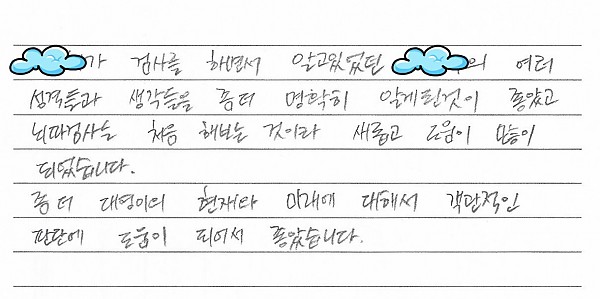 가 검사를 하면서 알고있었던 의 여러
성격들과 생각들을 좀 더 명확히 알게된것이 좋았고
뇌파검사는 처음 해보는 것이라 새롭고 도움이 많이
되었습니다.
좀 더 대영이의 현재와 미래에 대해서 객관적인
판단에 도움이 되어서 좋았습니다.